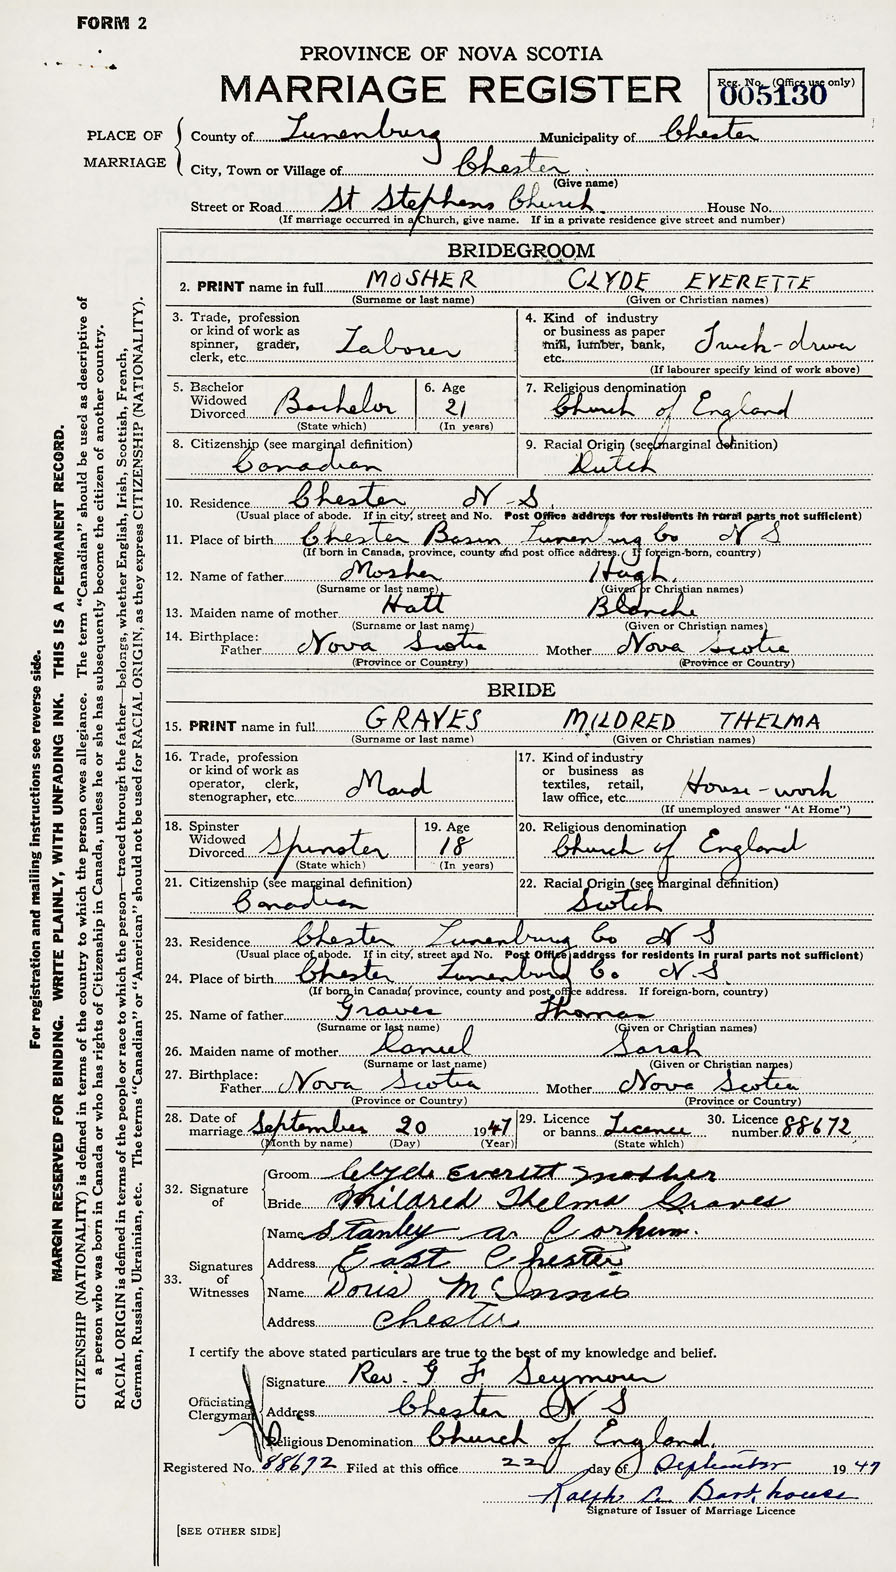 FORM 2
PROVINCE OF NOVA SCOTIA
MARRIAGE REGISTER
Reg. No. (Office use only)
005130
PLACE OF MARRIAGE
County of Lunenburg Municipality of Chester
City, Town or Village of Chester
(Give name)
Street or Road St Stephens Church House No.
(If marriage occurred in a Church, give name. If in a private residence give street and number)
BRIDEGROOM
2. PRINT name in full MOSHER CLYDE EVERETTE
(Surname or last name) (Given or Christian names)
3. Trade, profession or kind of work as spinner, grader, clerk, etc. Laborer
4. Kind of industry or business as paper mill, lumber, bank, etc. Truck-driver
(If labourer specify kind of work above)
5. Bachelor Widowed Divorced Bachelor
(State which)
6. Age 21
(In years)
7. Religious denomination Church of England
8. Citizenship (see marginal definition) Canadian
9. Racial Origin (see marginal definition) Dutch
10. Residence Chester N S
(Usual place of abode. If in city, street and No. Post Office address for residents in rural parts not sufficient)
11. Place of birth Chester Basin Lunenburg Co N S
(If born in Canada, province, county and post office address. If foreign-born, country)
12. Name of father Mosher Hugh
(Surname or last name) (Given or Christian names)
13. Maiden name of mother Hatt Blanche
(Surname or last name) (Given or Christian names)
14. Birthplace: Father Nova Scotia Mother Nova Scotia
(Province or Country) (Province or Country)
BRIDE
15. PRINT name in full GRAVES MILDRED THELMA
(Surname or last name) (Given or Christian names)
16. Trade, profession or kind of work as operator, clerk, stenographer, etc. Maid
17. Kind of industry or business as textiles, retail, law office, etc. House-work
(If unemployed answer "At Home")
18. Spinster Widowed Divorced Spinster
(State which)
19. Age 18
(In years)
20. Religious denomination Church of England
21. Citizenship (see marginal definition) Canadian
22. Racial Origin (see marginal definition) Scotch
23. Residence Chester Lunenburg Co N S
(Usual place of abode. If in city, street and No. Post Office address for residents in rural parts not sufficient)
24. Place of birth Chester Lunenburg Co. N.S.
(If born in Canada, province, county and post office address. If foreign-born, country)
25. Name of father Graves Thomas
(Surname or last name) (Given or Christian names)
26. Maiden name of mother Daniel Sarah
(Surname or last name) (Given or Christian names)
27. Birthplace: Father Nova Scotia Mother Nova Scotia
(Province or Country) (Province or Country)
28. Date of marriage September 20 1947
(Month by name) (Day) (Year)
29. Licence or banns Licence
(State which)
30. Licence number 88672
32. Signature of
Groom Clyde Everett Mosher
Bride Mildred Thelma Graves
33. Signatures of Witnesses
Name Stanley A. Corkum.
Address East Chester
Name Doris McInnis
Address Chester
I certify the above stated particulars are true to the best of my knowledge and belief.
Officiating Clergyman
Signature Rev. G F Seymour
Address Chester N S
Religious Denomination Church of England.
Registered No. 88672 Filed at this office 22 day of September 1947
Ralph Barkhouse
Signature of Issuer of Marriage Licence
[SEE OTHER SIDE]
For registration and mailing instructions see reverse side.
MARGIN RESERVED FOR BINDING. WRITE PLAINLY, WITH UNFADING INK. THIS IS A PERMANENT RECORD.
CITIZENSHIP (NATIONALITY) is defined in terms of the country to which the person owes allegiance. The term "Canadian" should be used as descriptive of
a person who was born in Canada or who has rights of Citizenship in Canada, unless he or she has subsequently become the citizen of another country.
RACIAL ORIGIN is defined in terms of the people or race to which the person—traced through the father—belongs, whether English, Irish, Scottish, French,
German, Russian, Ukrainian, etc. The terms "Canadian" or "American" should not be used for RACIAL ORIGIN, as they express CITIZENSHIP (NATIONALITY).